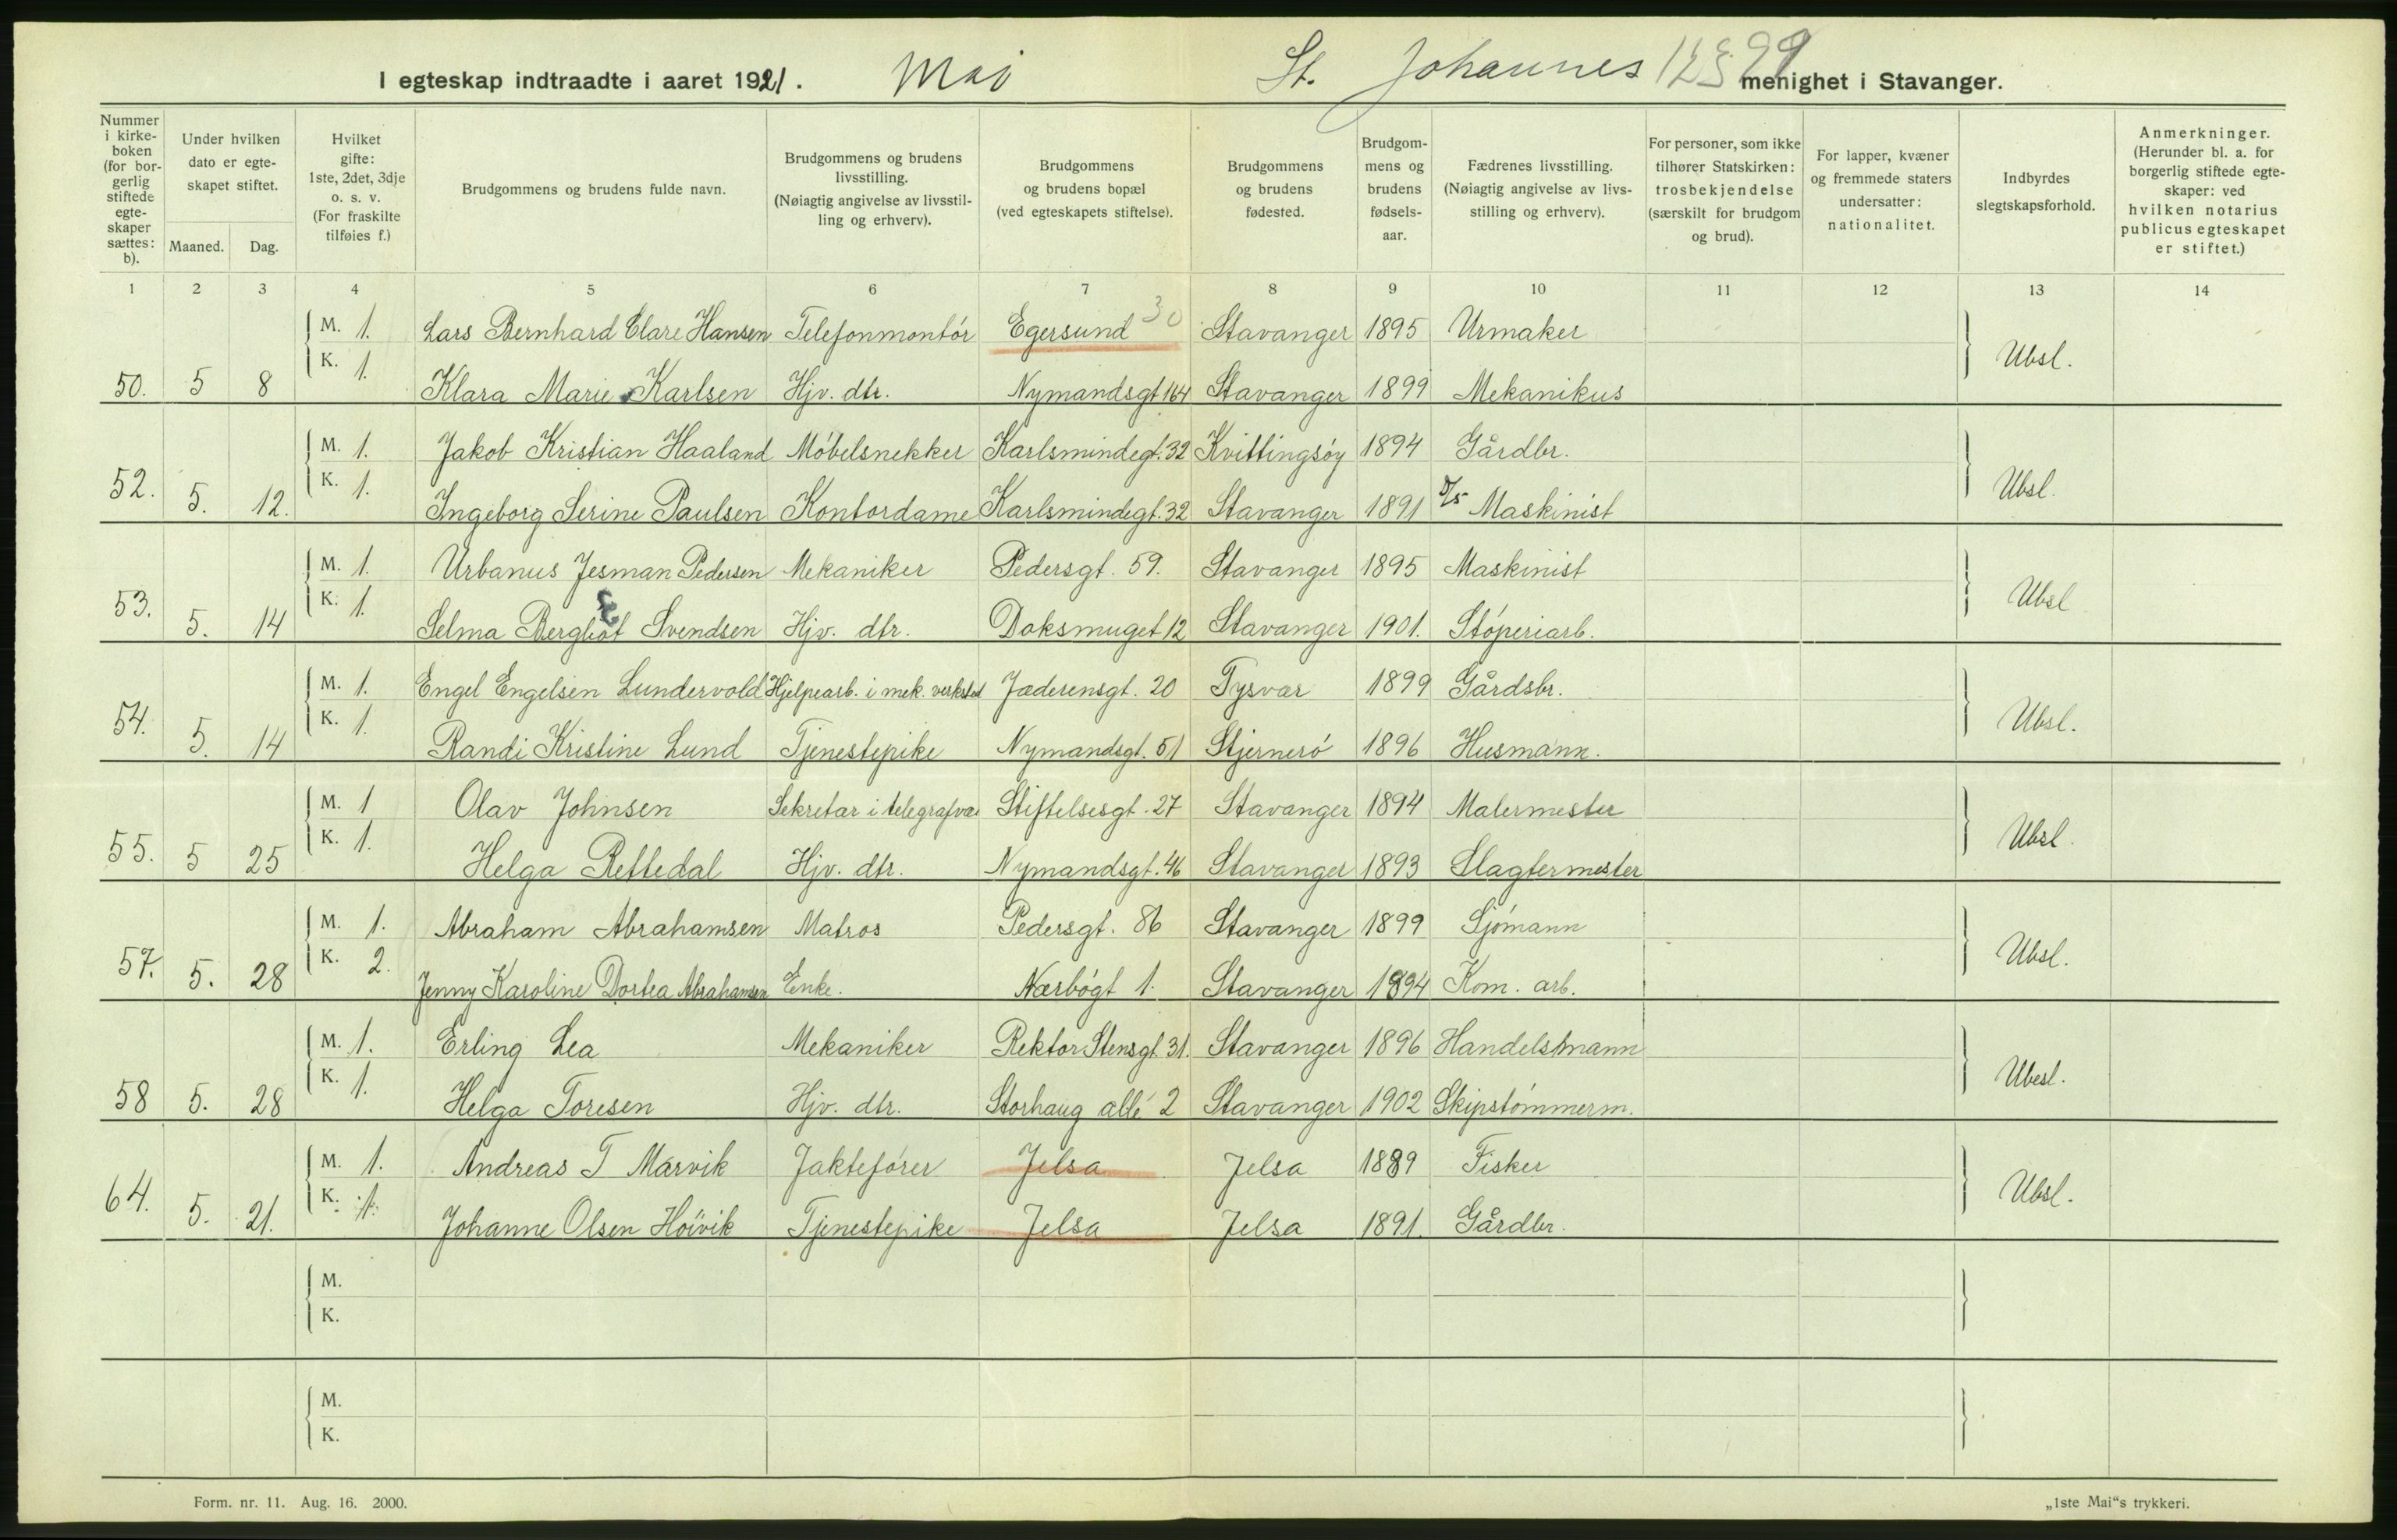 I egteskap indtraadte i aaret 1921. Mai St. Johannes menighet i Stavanger.
Nummer i kirke-boken (for bor-gerlig stiftede egte-skaper sættes: b).
Under hvilken dato er egte-skapet stiftet.
Maaned. Dag.
Hvilket gifte: 1ste, 2det, 3dje o. s. v. (For fraskilte tilføies f.)
Brudgommens og brudens fulde navn.
Brudgommens og brudens livsstilling. (Nøiagtig angivelse av livsstil-ling og erhverv).
Brudgommens og brudens bopæl (ved egteskapets stiftelse).
Brudgommens og brudens fødested.
Brudgom-mens og brudens fødsels-aar.
Fædrenes livsstilling. (Nøiagtig angivelse av livs-stilling og erhverv).
For personer, som ikke tilhører Statskirken: trosbekjendelse (særskilt for brudgom og brud).
For lapper, kvæner og fremmede staters undersatter: nationalitet.
Indbyrdes slegtskapsforhold.
Anmerkninger. (Herunder bl. a. for borgerlig stiftede egte-skaper: ved hvilken notarius publicus egteskapet er stiftet.)
1 2 3 4 5 6 7 8 9 10 11 12 13 14
M. 1. Lars Bernhard Clare Hansen Telefonmontór Egersund 30 Stavanger 1895 Urmaker
50. 5 8 K. 1. Klara Marie Karlsen Hjv. dtr. Nymandsgt 164 Stavanger 1899 Mekanikus Ubsl.
M. 1. Jakob Kristian Haaland Móbelsnekker Karlsmindegt. 32 Kvittingsóy 1894 Gårdbr.
52. 5. 12. K. 1. Ingeborg Serine Paulsen Kontordame Karlsmindegt. 32 Stavanger 1891 D/S Maskinist Ubsl.
M. 1. Urbanus Jesman Pedersen Mekaniker Pedersgt. 59. Stavanger 1895 Maskinist
53. 5. 14 K. 1. Selma Bergliot Svendsen Hjv. dtr. Doksmuget 12 Stavanger 1901. Stóperiarb. Ubsl
M. 1. Engel Engelsen Lundervold Hjelpearb. i mek. verksted Jæderensgt. 20 Tysvær 1899 Gårdsbr.
54. 5. 14 K. 1. Randi Kristine Lund Tjenestepike Nymandsgt. 51 Stjerneró 1896 Husmann. Ubsl.
M. 1 Olav Johnsen Sekretær i telegrafvæ Stiftelsesgt. 27 Stavanger 1894 Malermester
55. 5 25 K. 1. Helga Rettedal Hjv. dtr. Nymandsgt. 46 Stavanger 1893 Slagtermester Ubsl.
M. 1. Abraham Abrahamsen Matros Pedersgt. 86 Stavanger 1899 Sjómann
57. 5. 28 K. 2. Jenny Karoline Dortea Abrahamsen Enke. Nærbógt 1. Stavanger 1894 Kom. arb. Ubsl.
M. 1. Erling Lea Mekaniker Rektor Stensgt. 31. Stavanger 1896 Handelsmann
58 5. 28 K. 1. Helga Toresen Hjv. dtr. Storhaug allé 2 Stavanger 1902 Skipstómmerm. Ubesl.
M. 1. Andreas T Marvik Jaktefórer Jelsa Jelsa 1889 Fisker
64. 5. 21. K. 1. Johanne Olsen Hoivik Tjenestepike Jelsa Jelsa 1891. Gårdbr. Ubsl.
M.
K.
M.
K.
Form. nr. 11. Aug. 16. 2000. „1ste Mai“s trykkeri.